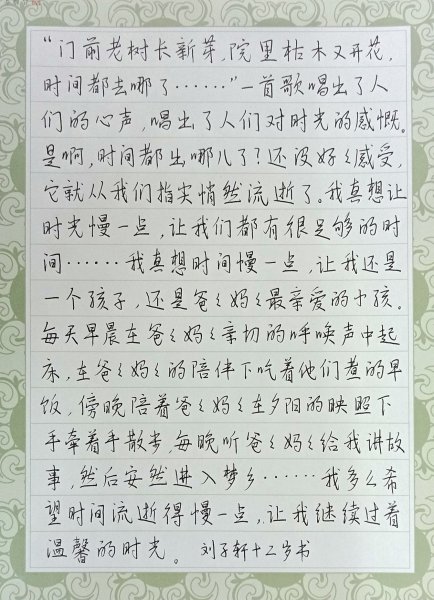 “门前老树长新芽,院里枯木又开花,
时间都去哪了……”一首歌唱出了人
们的心声,唱出了人们对时光的感慨。
是啊,时间都出哪儿了?还没好〻感受,
它就从我们指尖悄然流逝了。我真想让
时光慢一点,让我们都有很足够的时
间……我真想时间慢一点,让我还是
一个孩子,还是爸〻妈〻最亲爱的小孩。
每天早晨在爸〻妈〻亲切的呼唤声中起
床,在爸〻妈〻的陪伴下吃着他们煮的早
饭,傍晚陪着爸〻妈〻在夕阳的映照下
手牵着手散步,每晚听爸〻妈〻给我讲故
事,然后安然进入梦乡……我多么希
望时间流逝得慢一点,让我继续过着
温馨的时光。 刘子轩十二岁书